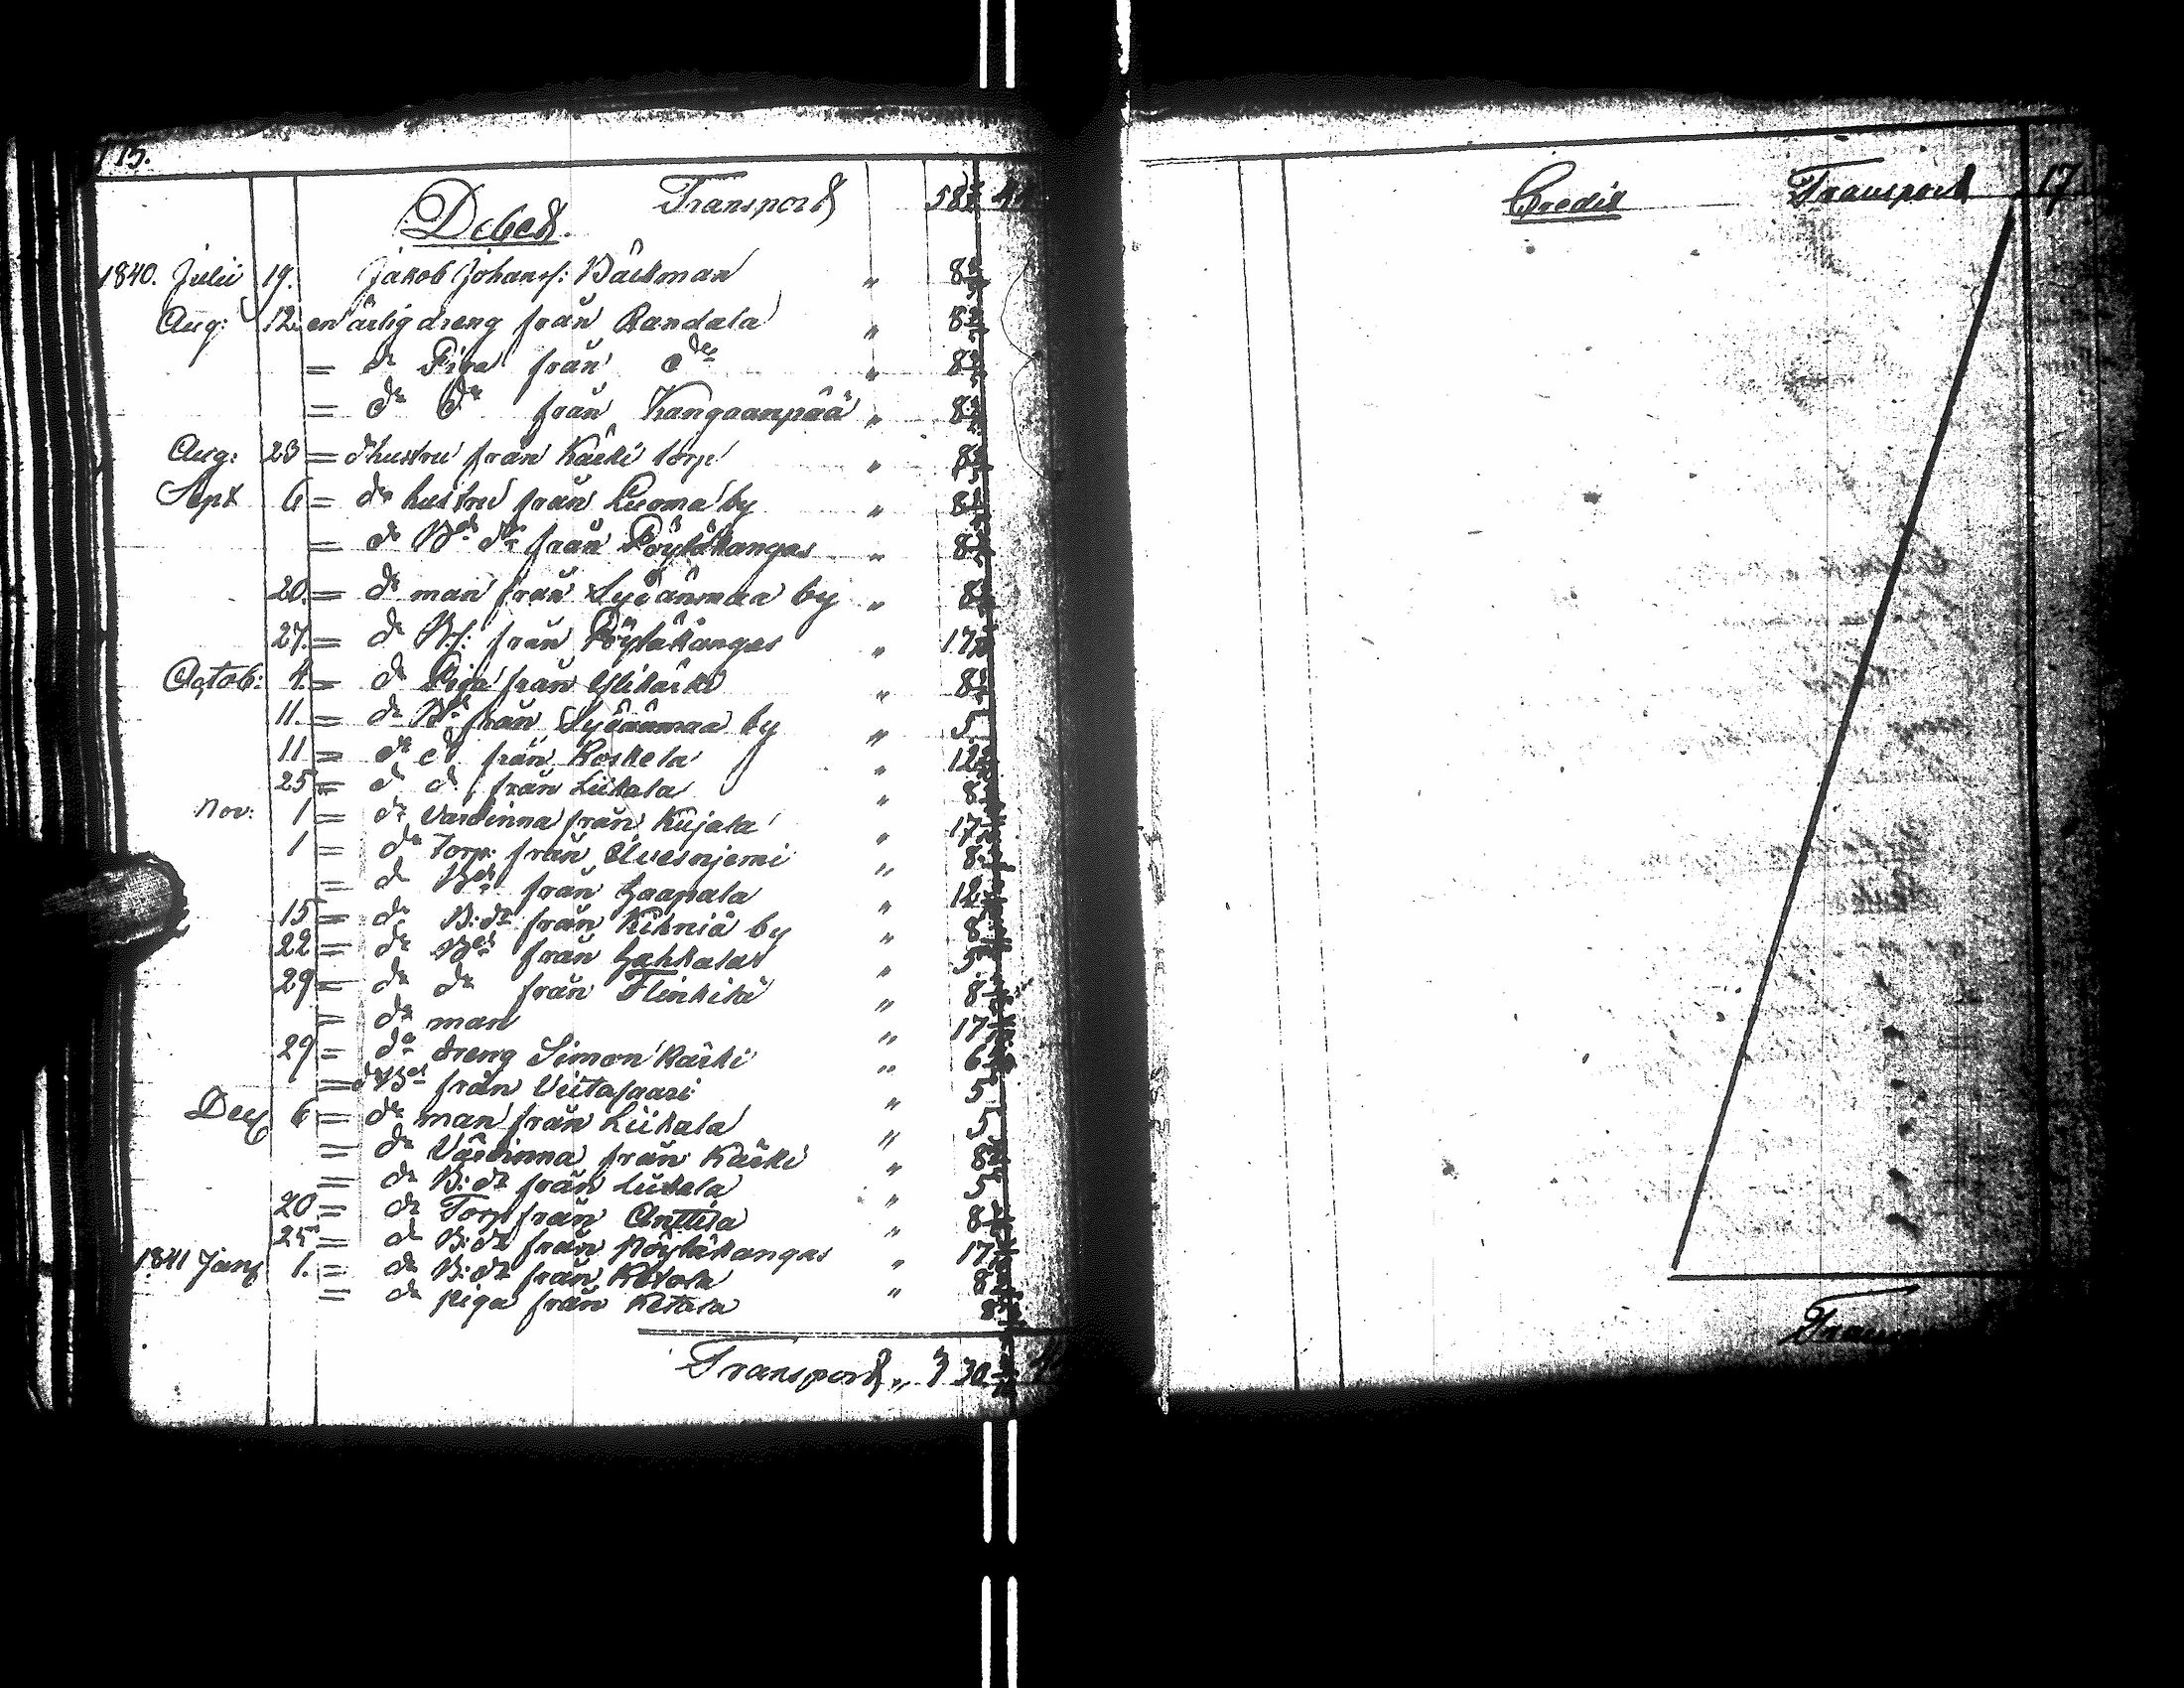 15.
Debet. Transport 58
1840. Julii 19. Jakob Johans: Bäckman " 8
Aug: 12. en ärlig dreng från Randala " 8
= do Piga från do " 8
= do do från Kangaanpää " 8
Aug: 23 = d hustru från Käcki torp " 8
Sept 6 = do hustru från Luoma by " 8
= do Bd do från Pöytäkangas " 8
20. = do man från Sydänmaa by " 8
27. = do från Pöytäkangas " 17
Octob: 4. = do Piga från Ylikäcki " 8
11. = do Bd från Sydänmaa by " 5
11 = do do från Koskela " 12
25 = d d från Liikala " 8
Nov: 1 = do Värdinna från Kujala " 17
1 = do Torp: från Alvesnjemi " 8
= do Bd från Haapala " 12
15 = do B: do från Kihniä by " 8
22 = do Bd från Hahkala " 5
29 = do do från Flinkilä " 8
= do man " 17
29 = do dreng Simon Käcki " 6
= do Bd från Viitasaari " 5
Dec 6 = do man från Liikala " 5
= do Värdinna från Käcki " 8
= do B: do från Liikala " 5
20 = do Torp från Anttila " 8
25 = do B: do från Pöytäkangas " 17
1841 Jan 1. = do B: do från Ketola " 8
= do piga från Ketola 8
Transport " 3 30
Credit Transport 17